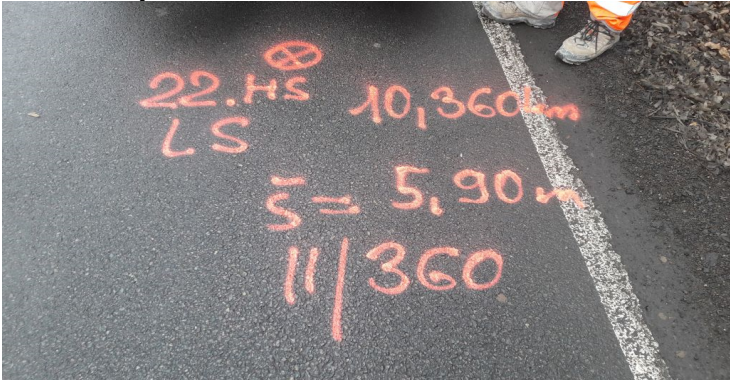 22.HS 10,360km
LS
š= 5,90m
11/360